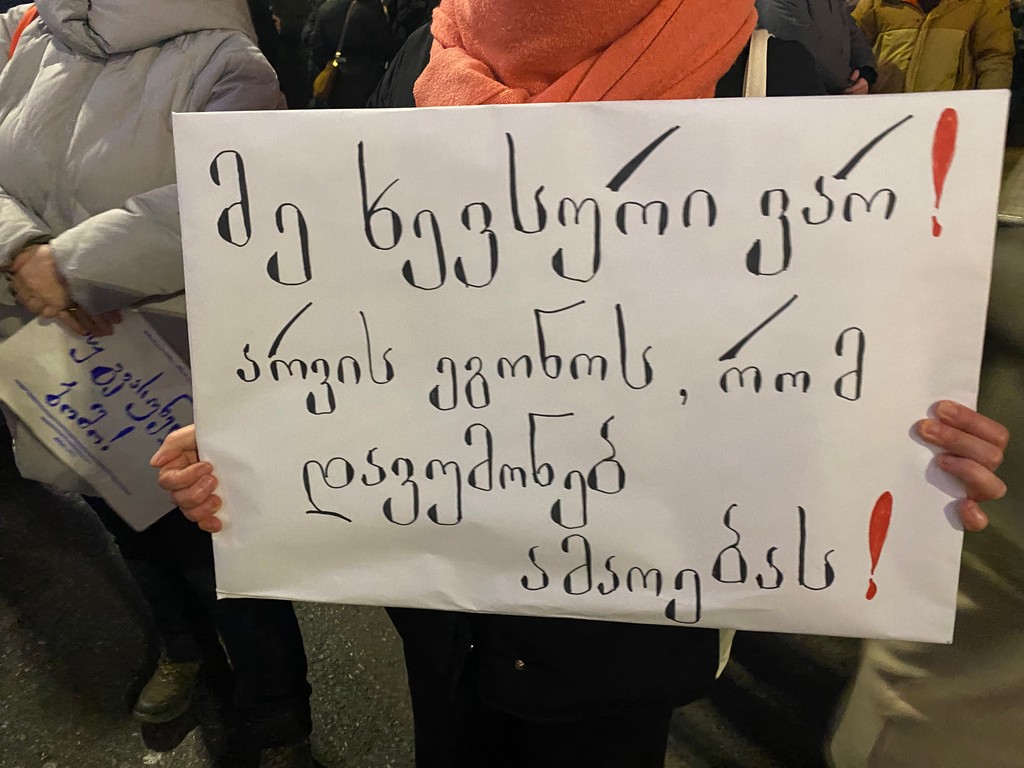 მე ხევსური ვარ!
არვის ეგონოს, რომ
დავემონებ
ამაოებას!